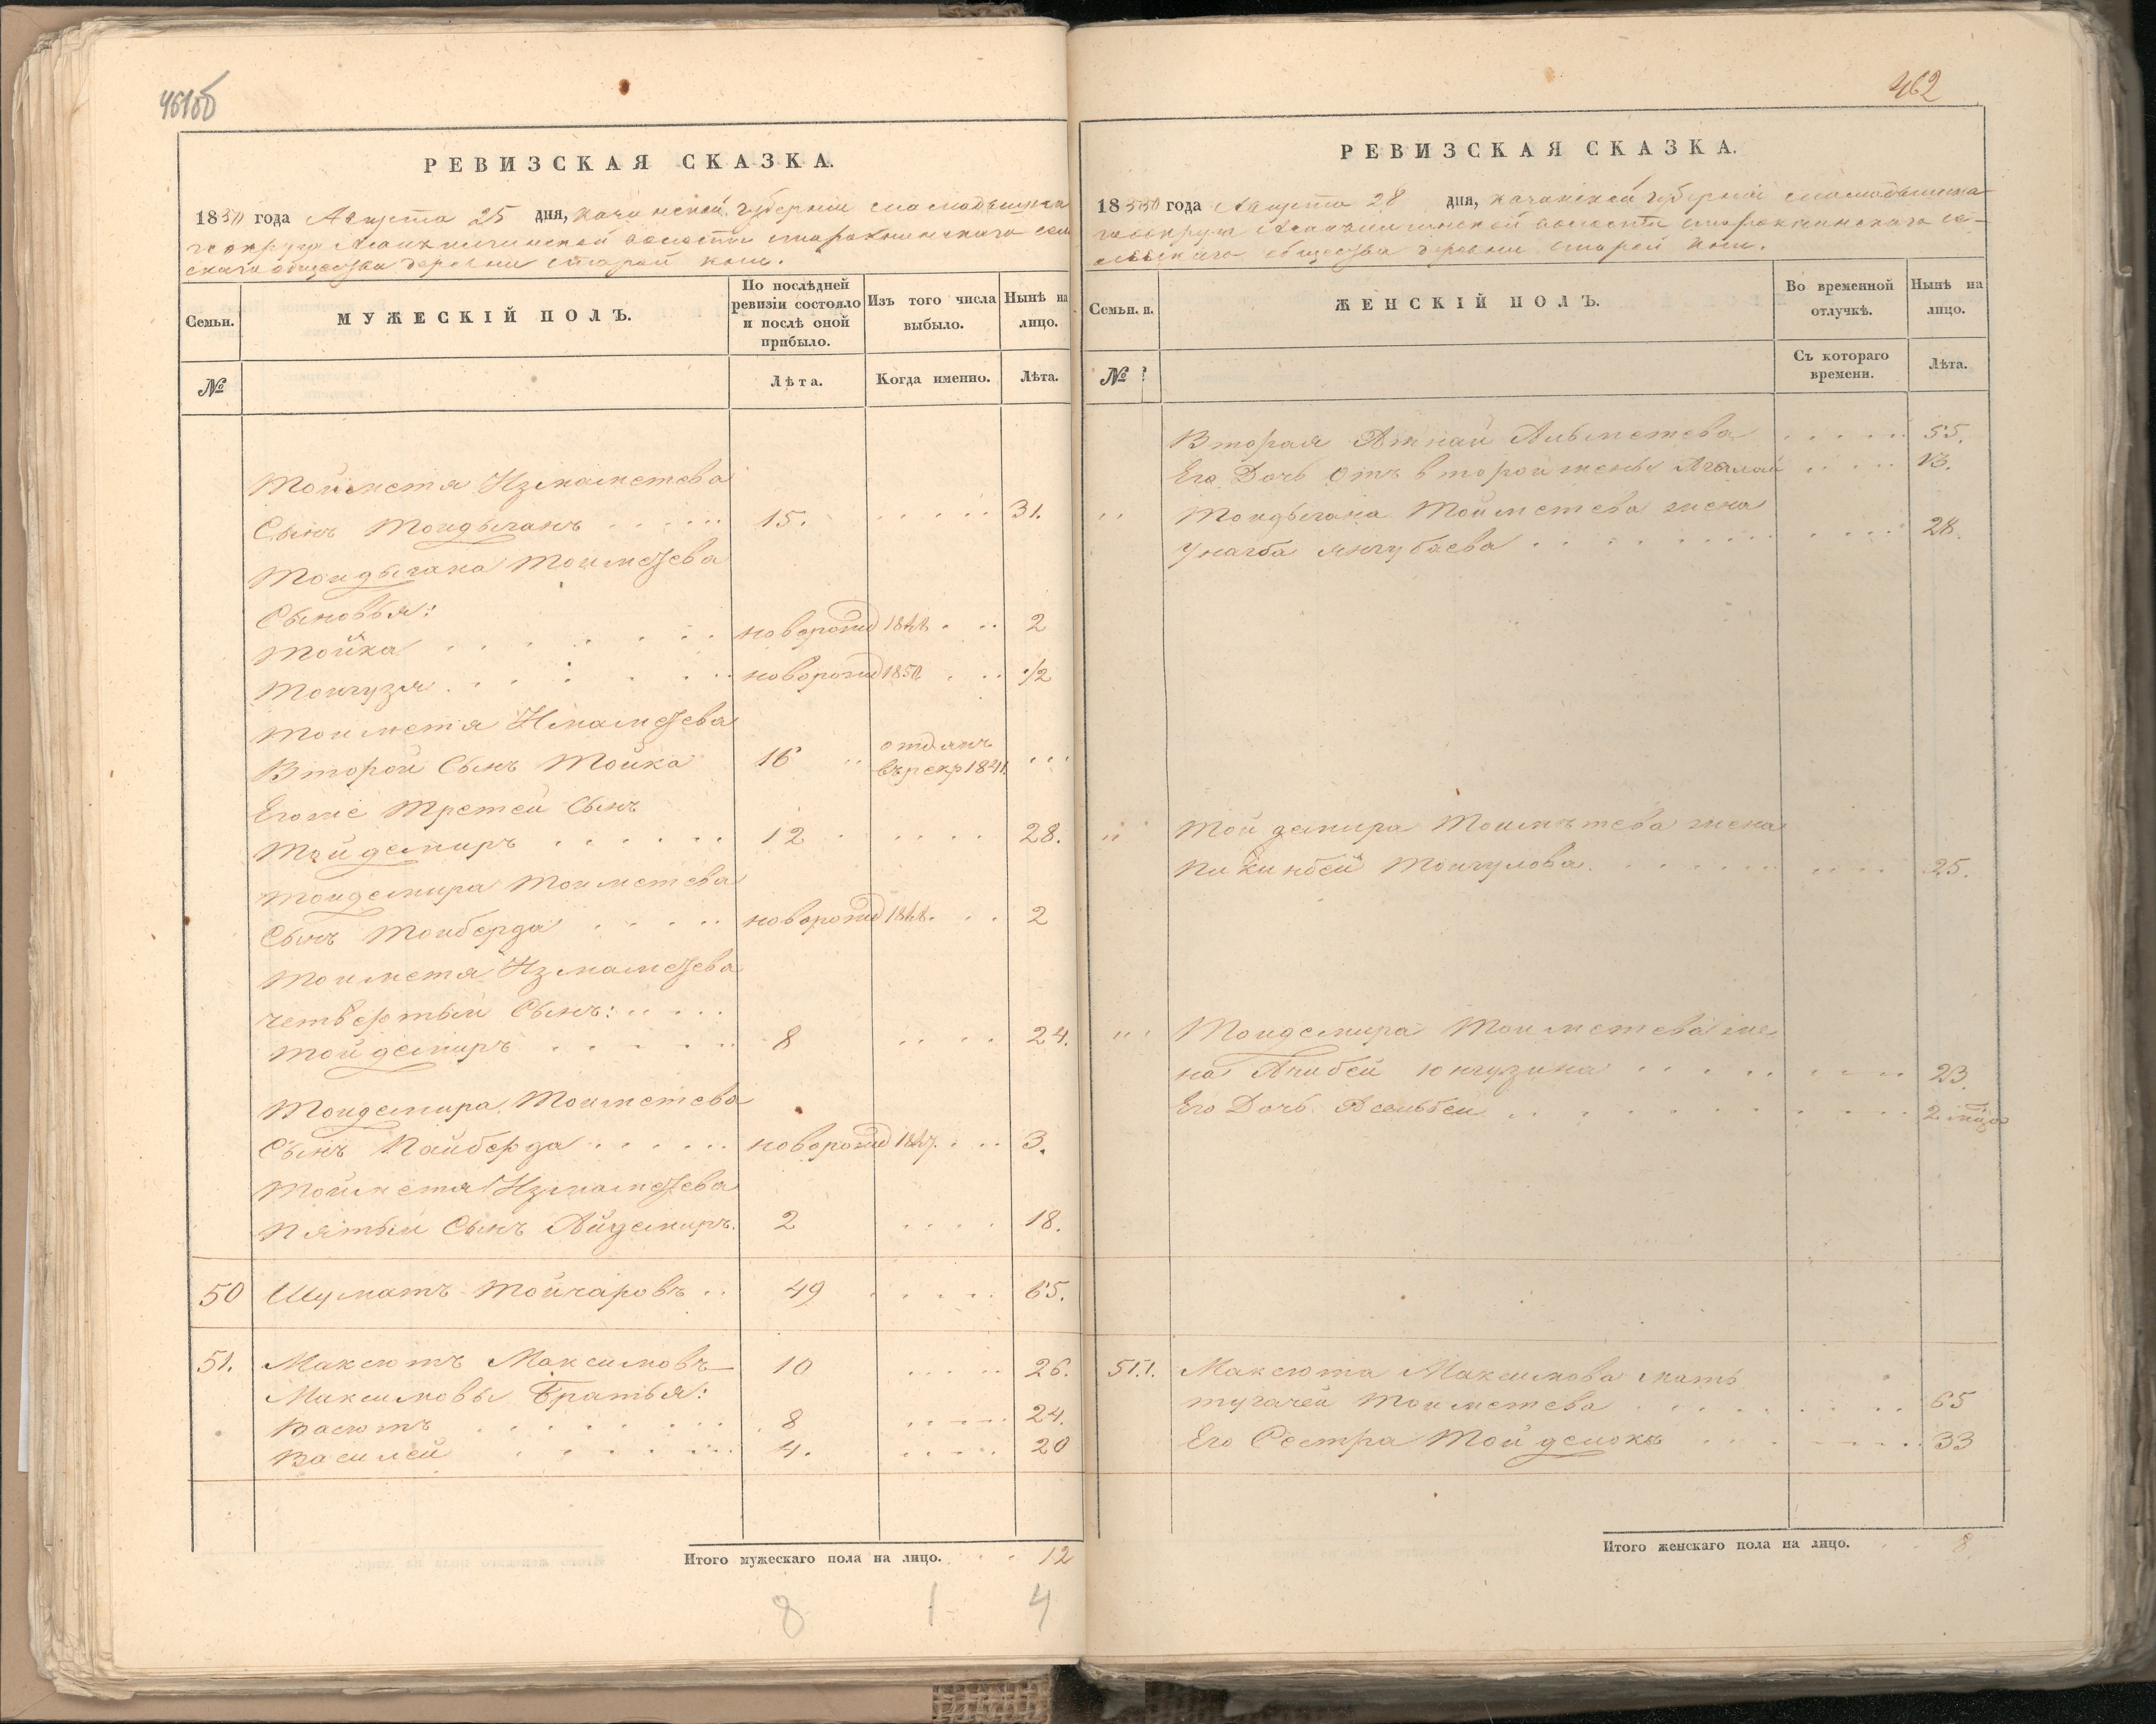 461об
РЕВИЗСКАЯ СКАЗКА.
1850 года Августа 25 дня, Казанской Губернии Мамадышска
го округа волости старокнинскаго сель
скаго общества деревни Старой Кни.
Семьи.
МУЖЕСКІЙ ПОЛЪ.
По послѣдней ревизіи состояло и послѣ оной прибыло.
Изъ того числа выбыло.
Нынѣ на лицо.
№
Лѣта.
Когда именно.
Лѣта.
Тойметя Измаметева
Сынъ Тойдыганъ 15. 31.
Тойдыгана Тойметева
Сыновья:
Тойка новорожд 1848 2
Тойгузя новорожд 1850 1/2
Тойметя Измаметева
Второй Сынъ Тойка 16 отданъ въ рекр 1841
Егоже Третей Сынъ
Тойдемиръ 12 28.
Тойдемира Тойметева
Сынъ Тойберда новорожд 1848. 2
Тойметя Измаметева
четвертый Сынъ:
Тойдемиръ 8 24.
Тойдемира Тойметева
Сынъ Пайберда новорожд 1847. 3.
Тойметя Измаметева
Пятый Сынъ Айдемиръ. 2 18.
50 Шуматъ Тойчаровъ 49 65.
51. Максютъ Максимовъ 10 26.
Максимовы Братья:
Васютъ 8 24.
Василей 4. 20
Итого мужескаго пола на лицо. 12
8 1 4
462
РЕВИЗСКАЯ СКАЗКА.
1850 года Августа 28 дня, Казанской Губерніи Мамадышска
го округа волости старокнинскаго се
льскаго общества деревни Старой Кни.
Семьи.
ЖЕНСКІЙ ПОЛЪ.
Во временной отлучкѣ.
Нынѣ на лицо.
№
Съ котораго времени.
Лѣта.
Вторая Атнай Альметева 55.
Его Дочь отъ второй жены 13.
Тойдыгана Тойметева жена
Унагба Янгубаева 28.
Тойдемира Тойметева жена
Пикинбей Тойгулова 25.
Тойдемира Тойметева же
на Апибей Юнгузина 23.
Его Дочь Асеньбей 2 мѣсо
51. Максюта Максимова мать
тугачей Тойметева 65
Его Сестра Тойдемокъ 33
Итого женскаго пола на лицо. 8.